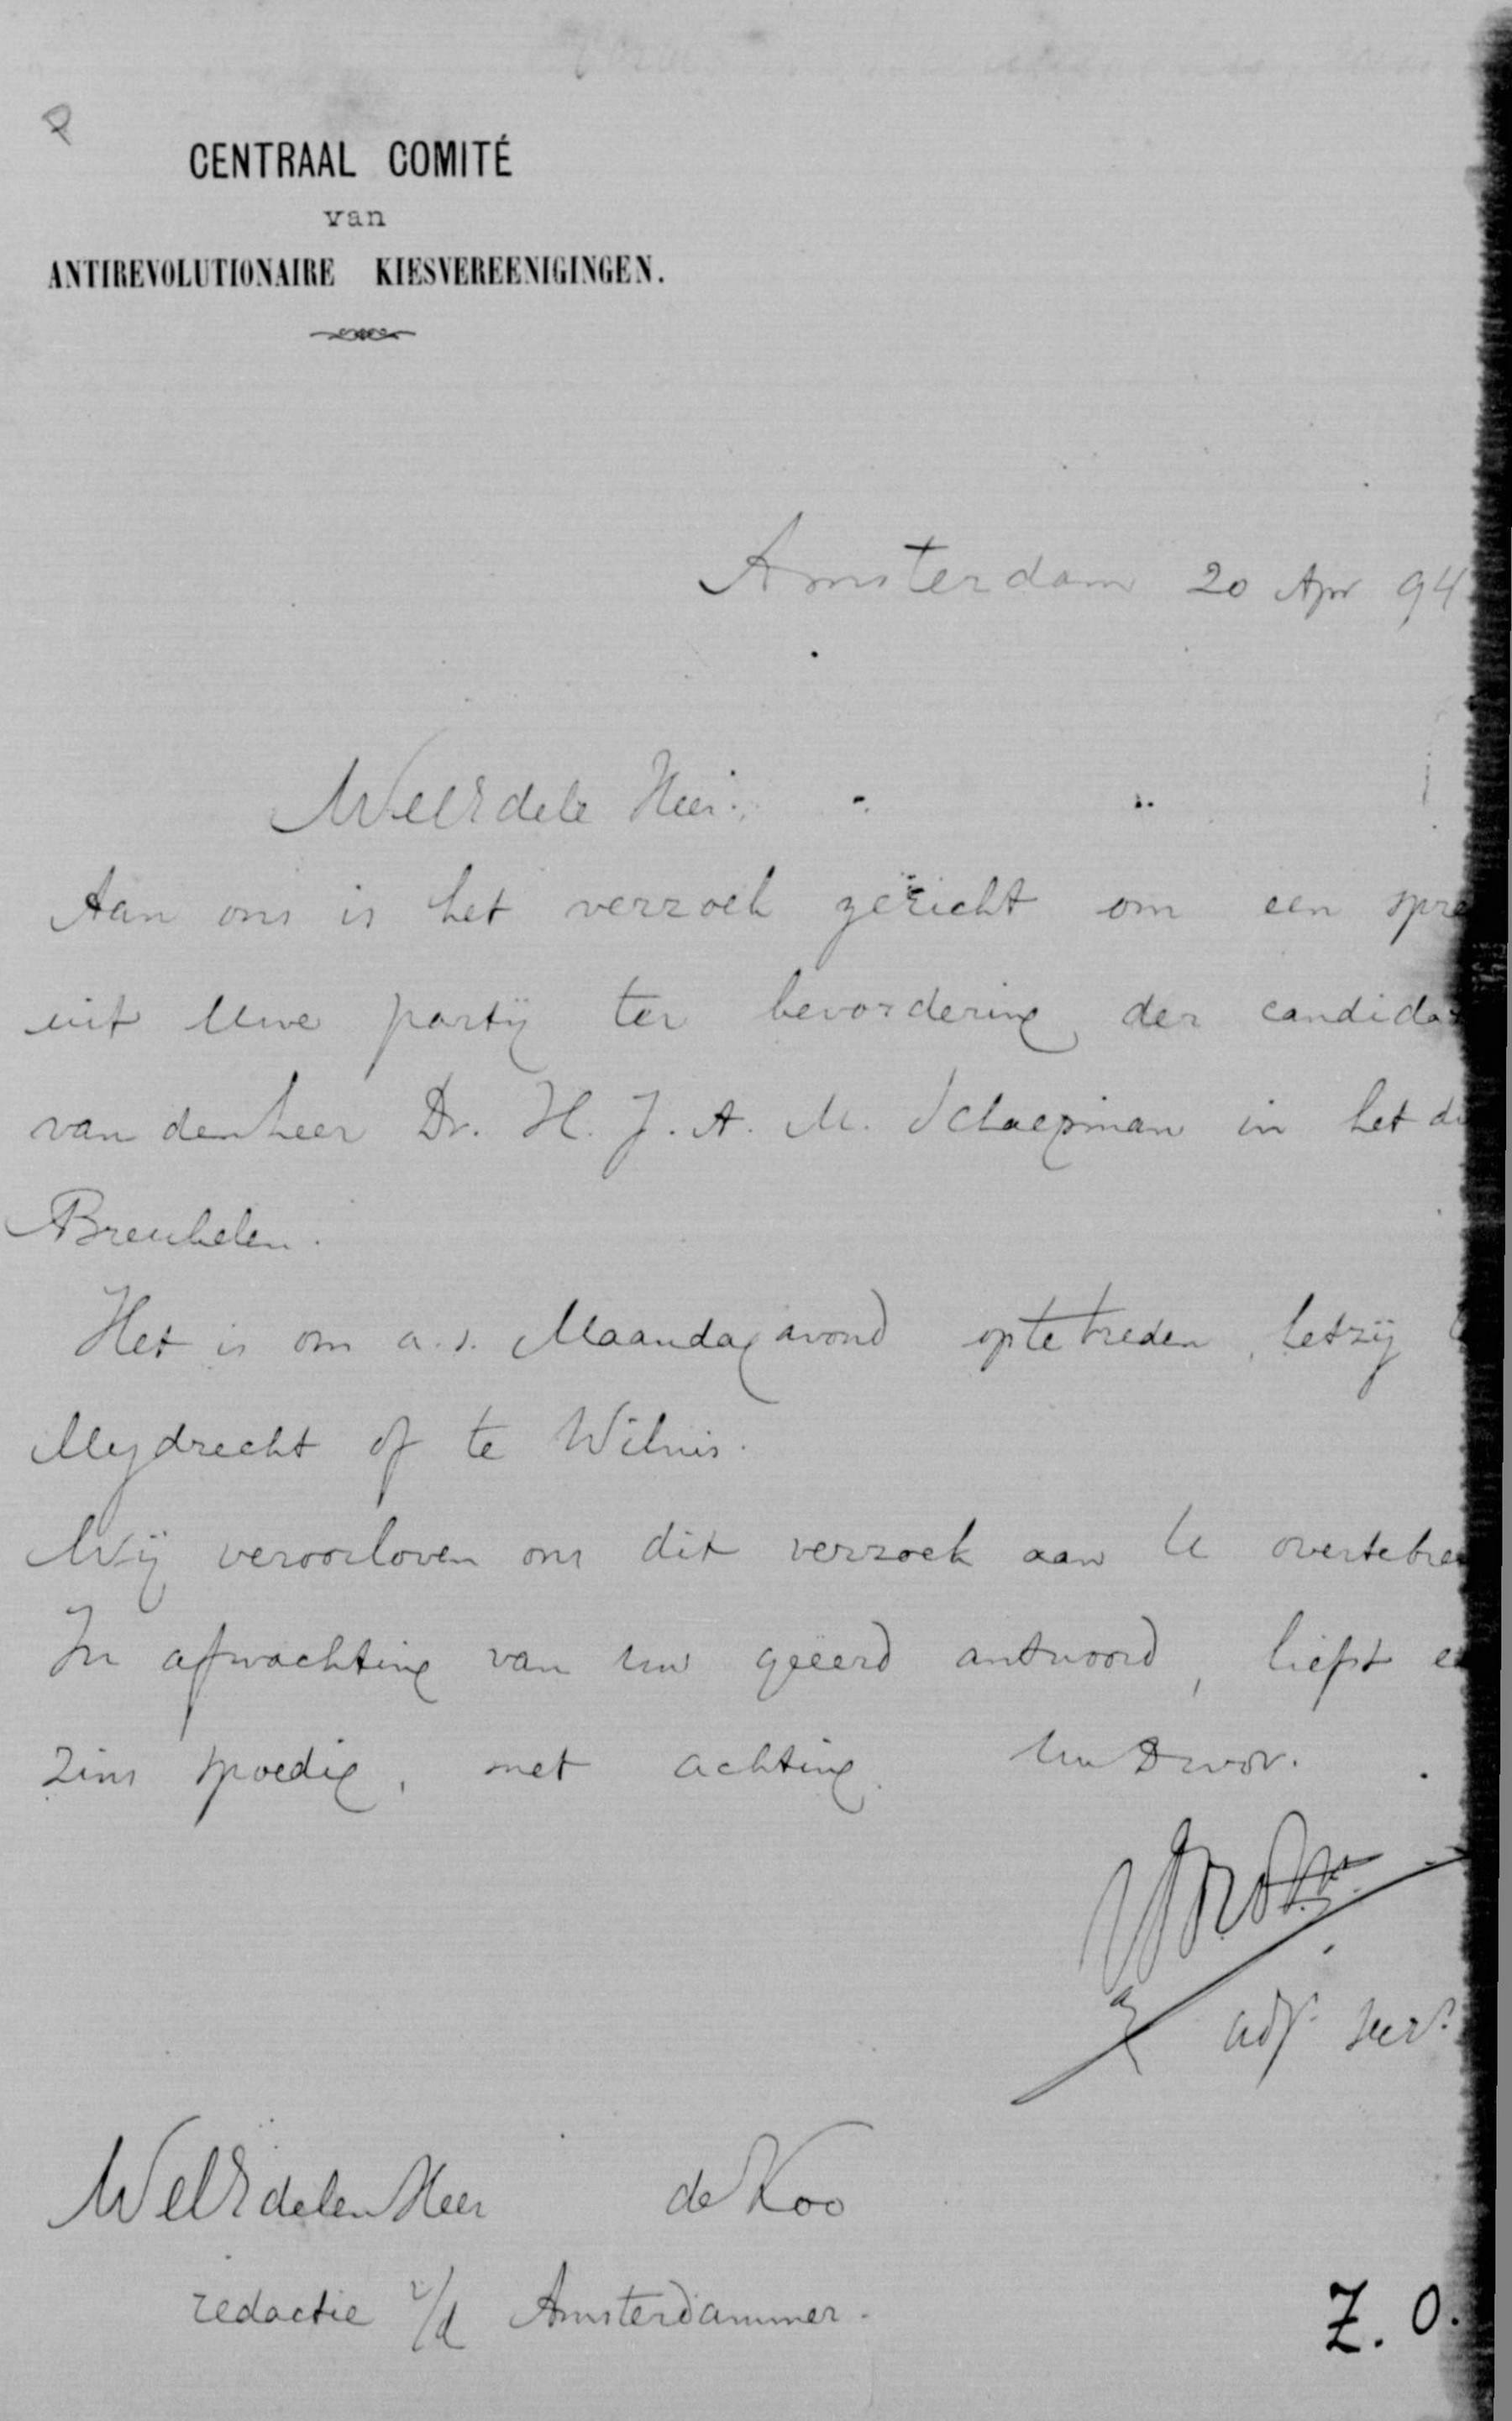 CENTRAAL COMITÉ
van
ANTIREVOLUTIONAIRE KIESVEREENIGINGEN.
Amsterdam 20 Apr 94
WelEdele Heer.
Aan ons is het verzoek gericht om een spre
uit Uwe partij ter bevordering der candida
van den heer Dr. H. J. A. M. Schaepman in het di
Breukelen.
Het is om a.s. Maandagavond optetreden, hetzij
Mydrecht of te Wilnis.
Wij veroorloven ons dit verzoek aan U overtebre
In afwachting van Uw geëerd antwoord, liefst e
zins spoedig, met achting. Uw Dwdr.
adj. secr.
WelEdelen Heer de Koo
redactie v/d Amsterdammer.
Z. O.